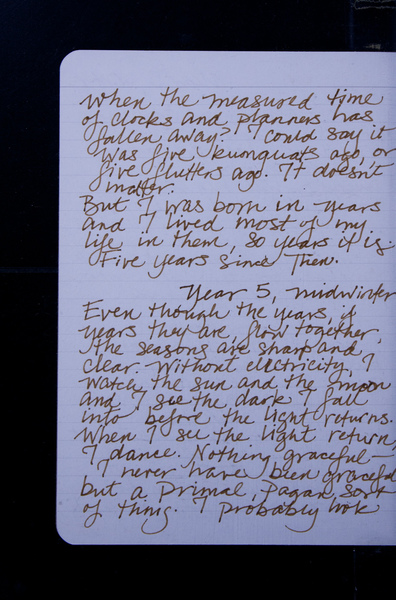 When the measured time
of clocks and planners has
fallen away? I could say it
was five kumquats ago, or
five flutters ago. It doesn't
matter.
But I was born in years
and I lived most of my
life in them, so years it is.
Five years since Then.
Year 5, midwinter
Even though the years, if
years they are, flow together,
the seasons are sharp and
clear. Without electricity, I
watch the sun and the moon
and I see the dark I fall
into before the light returns.
When I see the light return,
I dance. Nothing graceful—
I never have been graceful
but a primal, pagan, sort
of thing. I probably look